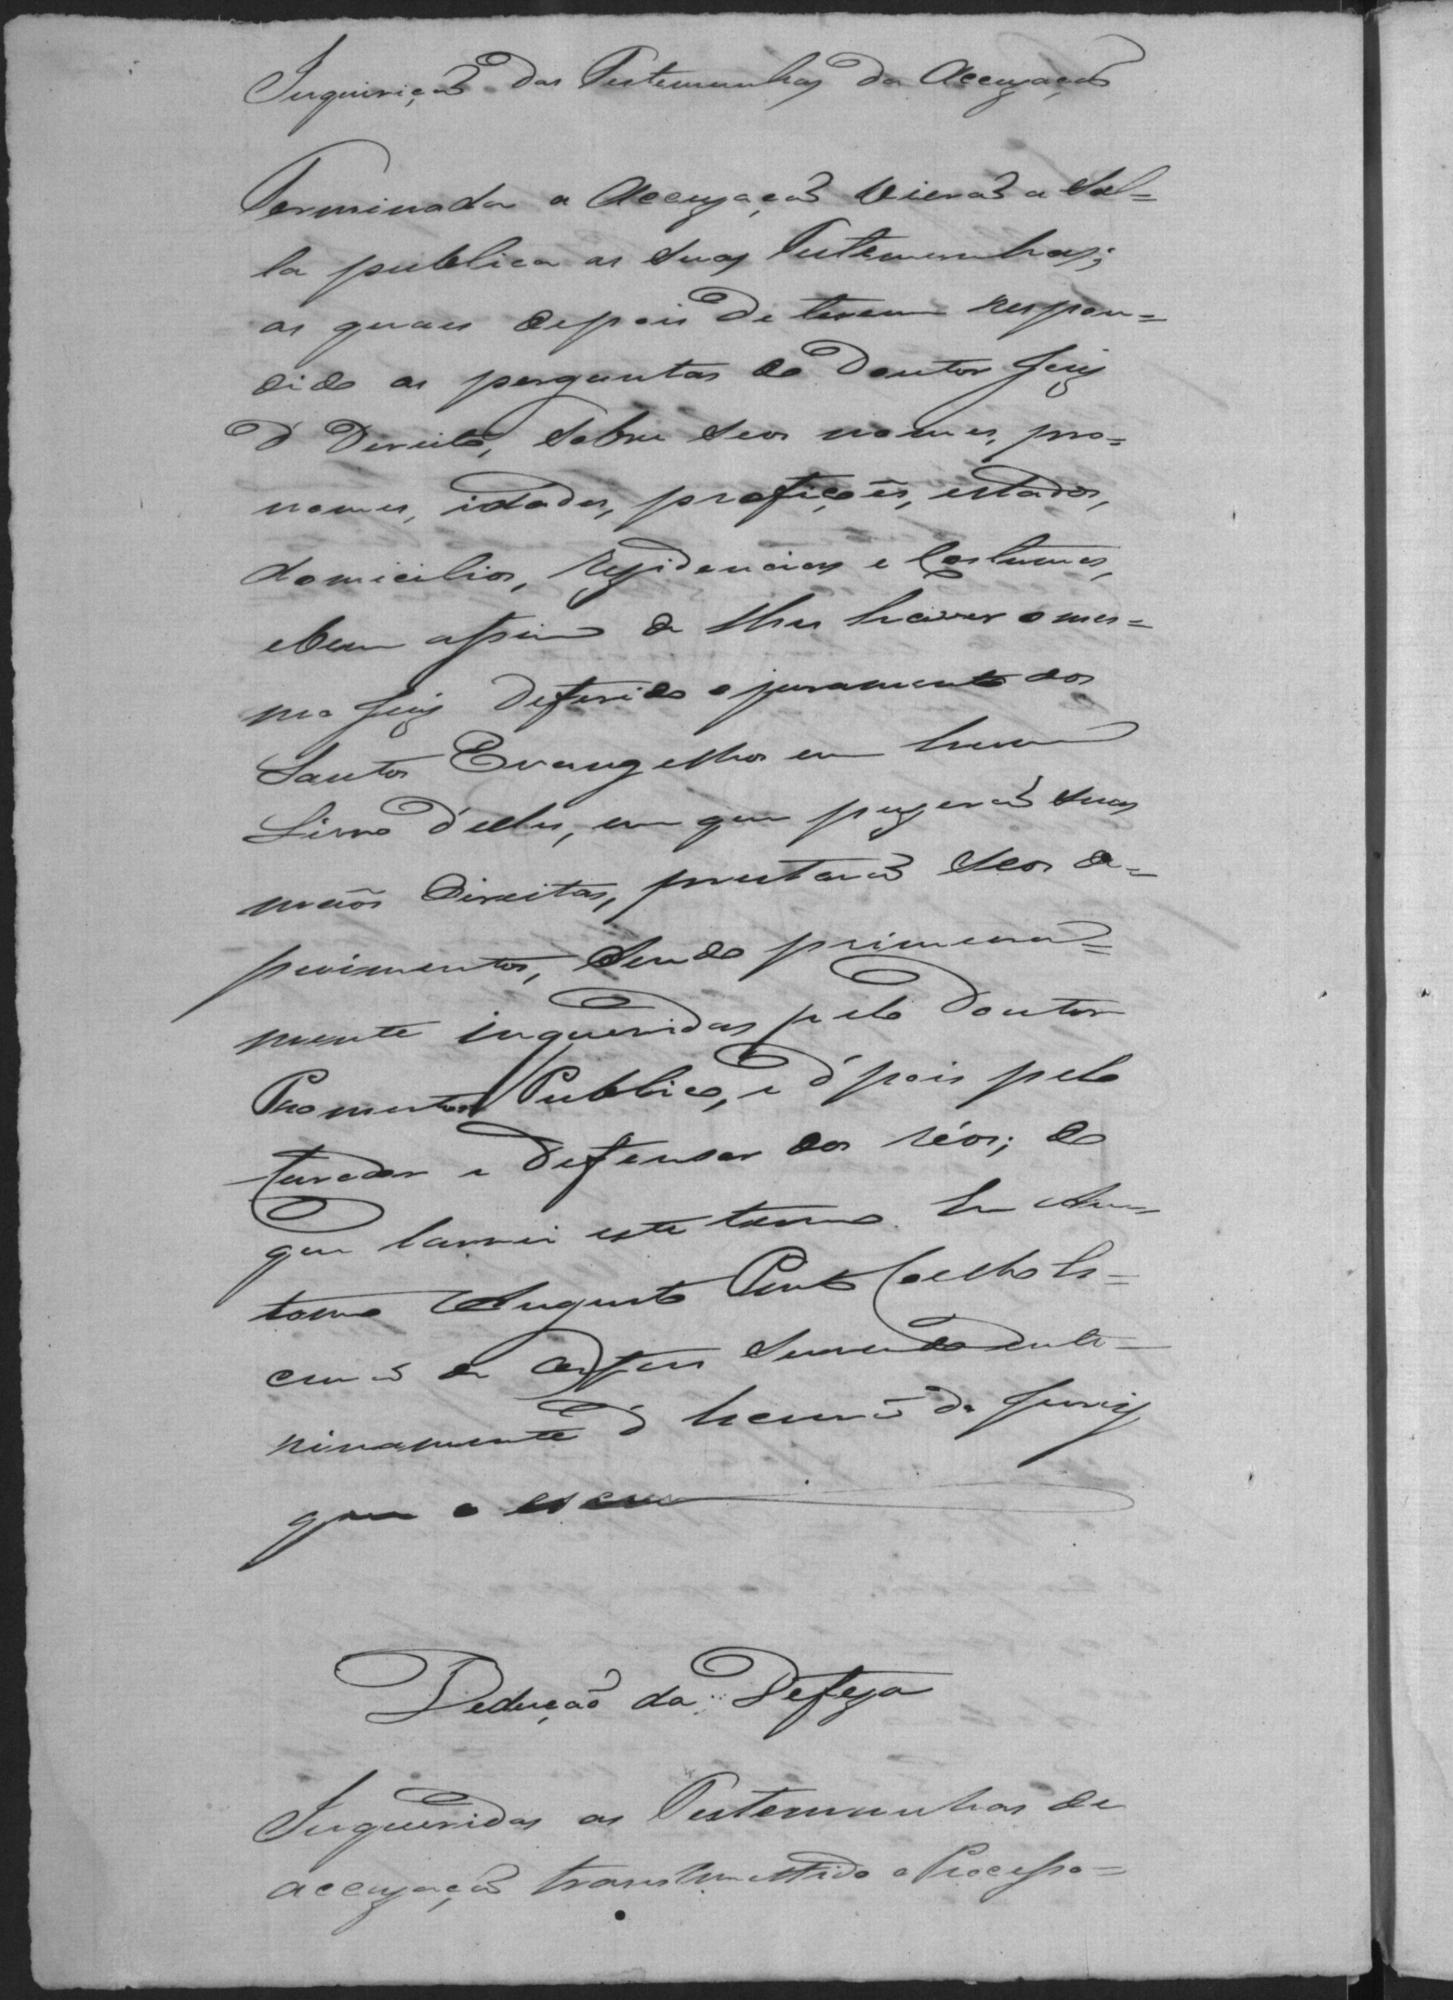 Inquirição das Testemunhas da Accuzação
Terminada a Accuzação vierão a Sal=
la publica as suas Testemunhas;
as quaes depois de terem respon=
dido as perguntas do Doutor Juiz
d'Dereito, sobre seos nomes, pro=
nomes, idades, profições, estados,
domicilios, rezidencias e Costumes,
e bem assim de lhes haver o mes=
mo Juiz deferido o juramento dos
Santos Evangelhos em hum
Livro d'elles, em que puzerão suas
mãos direitas, prestarão seos de=
poimentos, sendo primeira=
mente inqueridas pelo Doutor
Promotor Publico, e d'pois pelo
Curador e Defensor dos réos; do
que lavrei este termo. Eu An=
tonio Augusto Pinto Coelho Es=
crivão de servindo inte=
rinamente d' do Jury
que o escrevi
Dedução da Defeza
Inqueridas as Testemunhas de
accuzação o Processo=